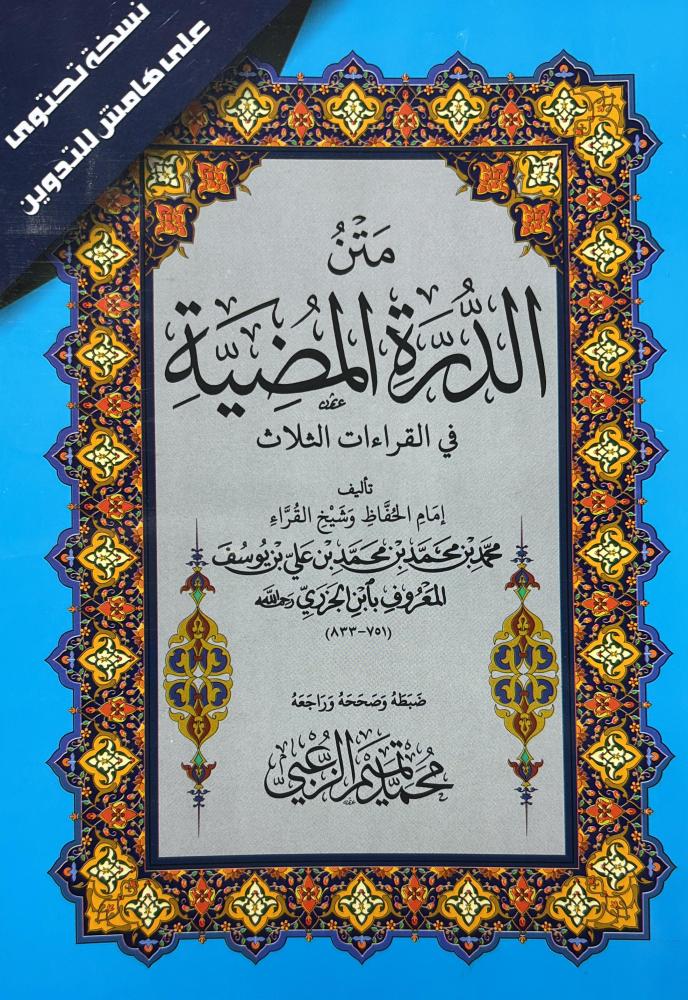 نسخة تحتوى
على هامش للتدوين
مَتْنُ
الدُّرَّةِ المُضِيَّةِ
في القراءات الثلاث
تأليف
إمَامِ الحُفَّاظِ وَشَيْخِ القُرَّاءِ
مُحَمَّدِ بْنِ مُحَمَّدِ بْنِ مُحَمَّدِ بْنِ عَلِيِّ بْنِ يُوسُفَ
المَعْرُوفِ بِٱبْنِ الجَزَرِيِّ رَحِمَهُ اللَّه
(٧٥١-٨٣٣)
ضَبَطَهُ وَصَحَحَهُ وَرَاجَعَهُ
مُحَمَّد تَمِيم الزُّعْبِي